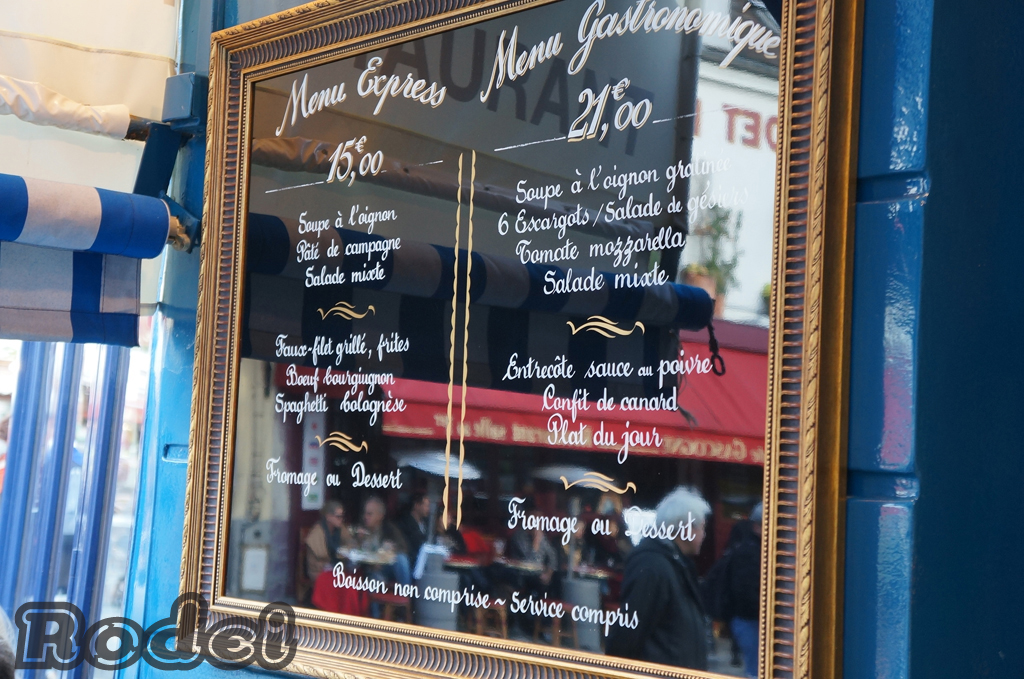 Menu Express
15,€00
Soupe à l'oignon
Pâté de campagne
Salade mixte
Faux-filet grillé, frites
Bœuf bourguignon
Spaghetti bolognèse
Fromage ou Dessert
Menu Gastronomique
21,€00
Soupe à l'oignon gratinée
6 Escargots/Salade de gésiers
Tomate mozzarella
Salade mixte
Entrecôte sauce au poivre
Confit de canard
Plat du jour
Fromage ou Dessert
Boisson non comprise ~ Service compris
Rodel